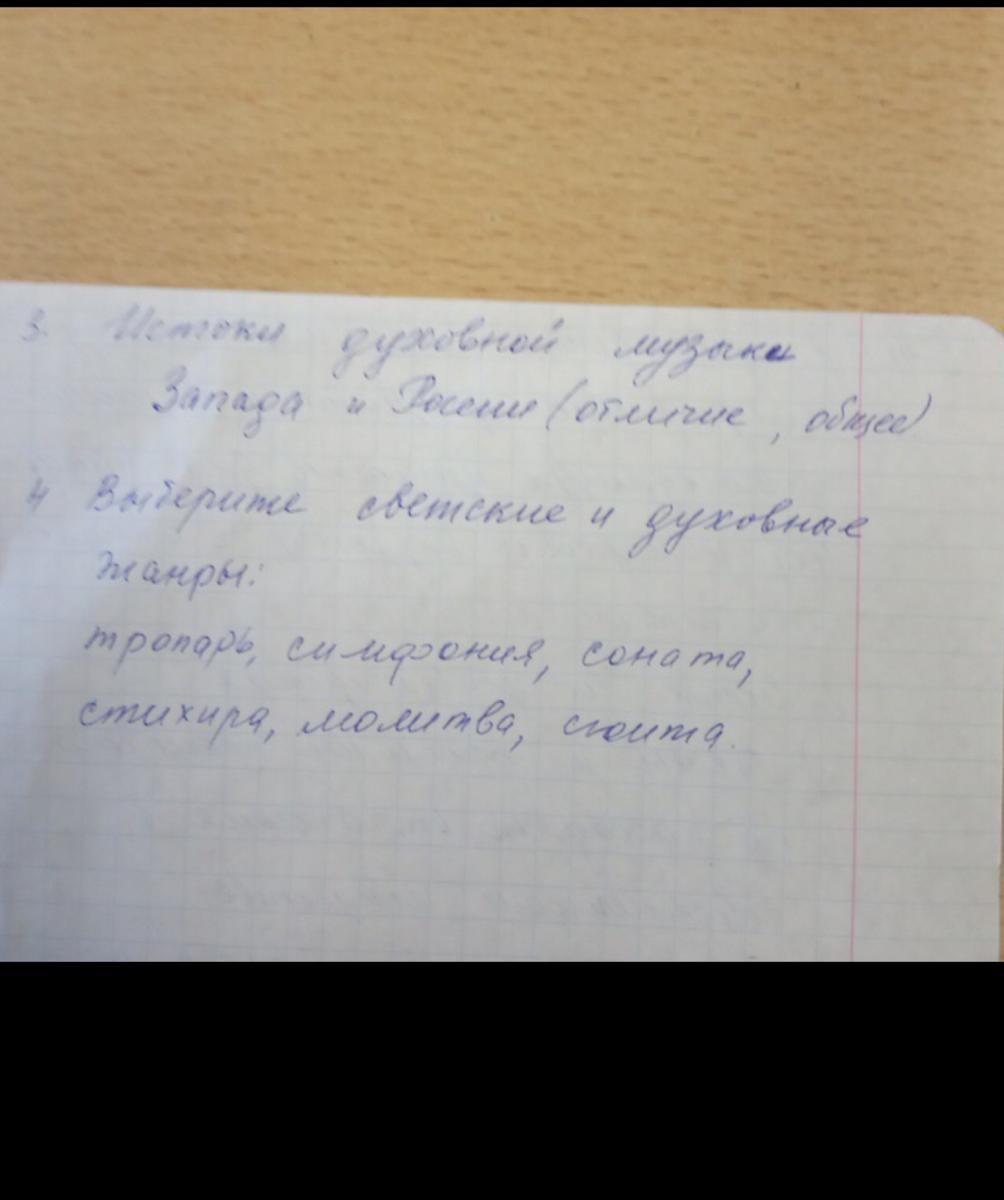 3. Истоки духовной музыки
Запада и России (отличие, общее)
4 Выберите светские и духовные
жанры:
тропарь, симфония, соната,
стихира, молитва, сюита.